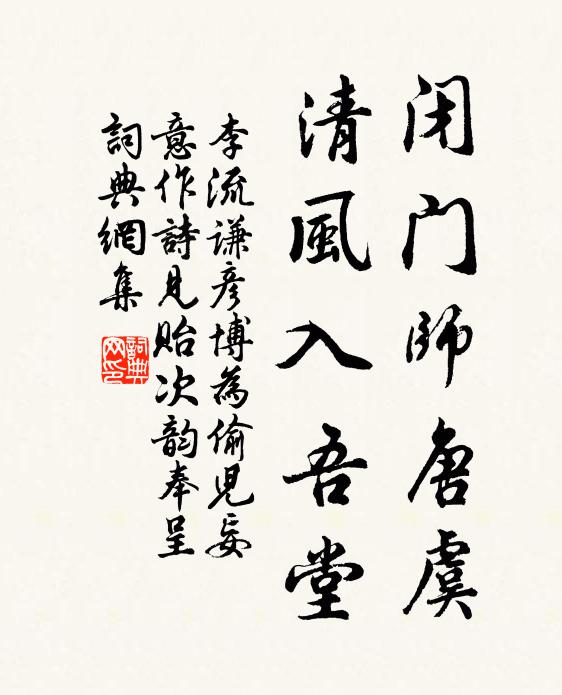 闭门師唐虞
清風入吾堂
李流谦彦博為偷児妄
意作詩見貽次韵奉呈
詞典網集
詞典
网印